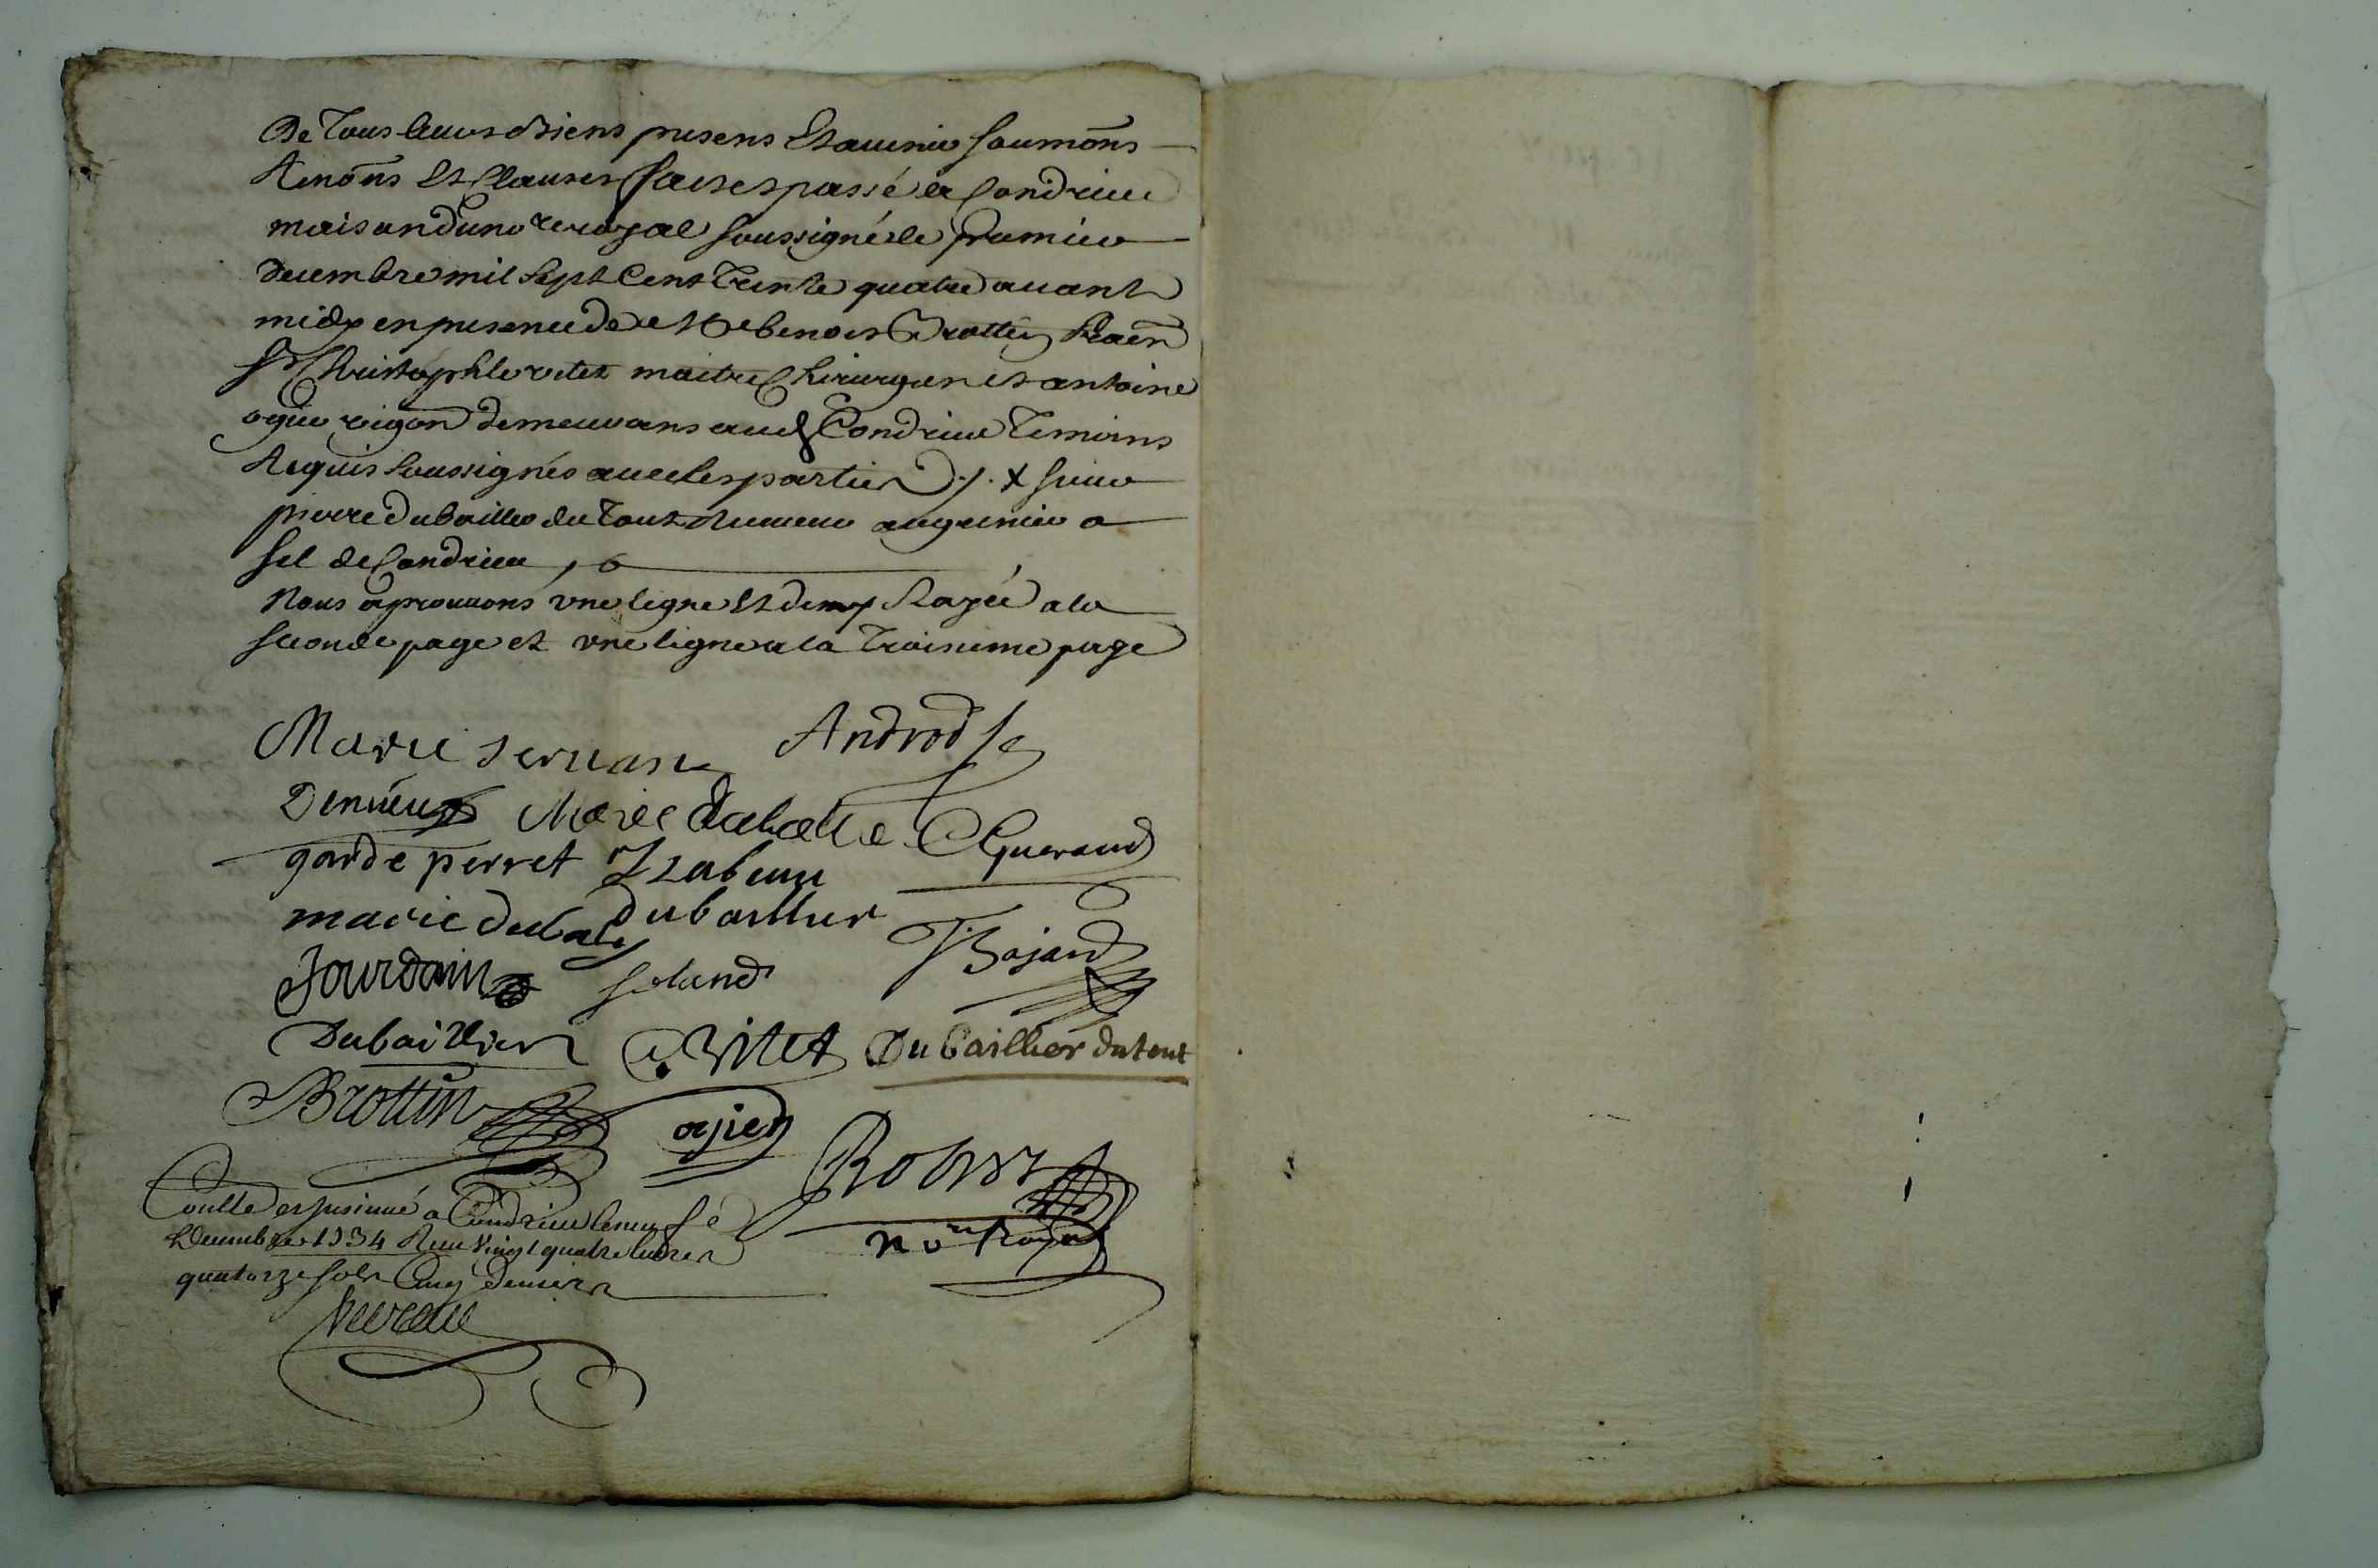 De Tous leurs biens presens Et avenir soumõns
Renõns Et Clauses fait et passé a Condrieu
maison du no.re royal soussigné le premier
Decembre mil sept Cent Trente quatre avant
midy en presence de Me benoit Brottin
Sr Christophle vitet maitre Chirurgien et antoine
ogier vigon demeurans aud Condrieu Temoins
Requis soussignés avec les parties ./. X sieur
pierre dubaillier du Tout receveur au grenier a
sel de Condrieu
Nous aprouvons une ligne Et demy Rayée a la
seconde page et une ligne a la Troisieme page
Marie servan Androd
Marie Guerand
garde perret Izabeau
marie dubal dubaillier
Jourdain J Bajard
Dubaillier C. Vitet Dubaillier dutout
Brottin ogier
Robert
Controllé et insinué a Condrieu le neuf
Decembre 1734 Receu Vingt quatre livres
quatorze sols Cinq deniers
nore Royal